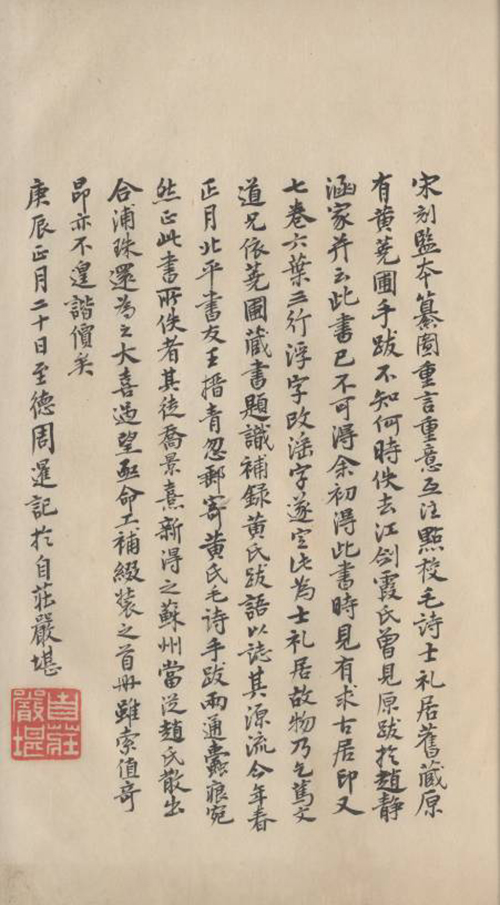 宋刻監本纂圖重言重意互注點校毛詩士礼居舊藏原
有黄蕘圃手跋不知何時佚去江劍霞氏曾見原跋於趙静
涵家并云此書已不可得余初得此書時見有求古居印又
七卷六葉三行浮字改滛字遂定此為士礼居故物乃乞篤文
道兄依蕘圃藏書題識補録黄氏跋語以誌其源流今年春
正月北平書友王搢青忽郵寄黄氏毛詩手跋兩通蠹痕宛
然正此書所佚者其徒喬景熹新得之蘇州當從趙氏散出
合浦珠還為之大喜過望亟命工補綴装之首冊雖索值奇
昂亦不遑諧價矣
庚辰正月二十日至德周暹記於自莊嚴堪
自莊
嚴堪